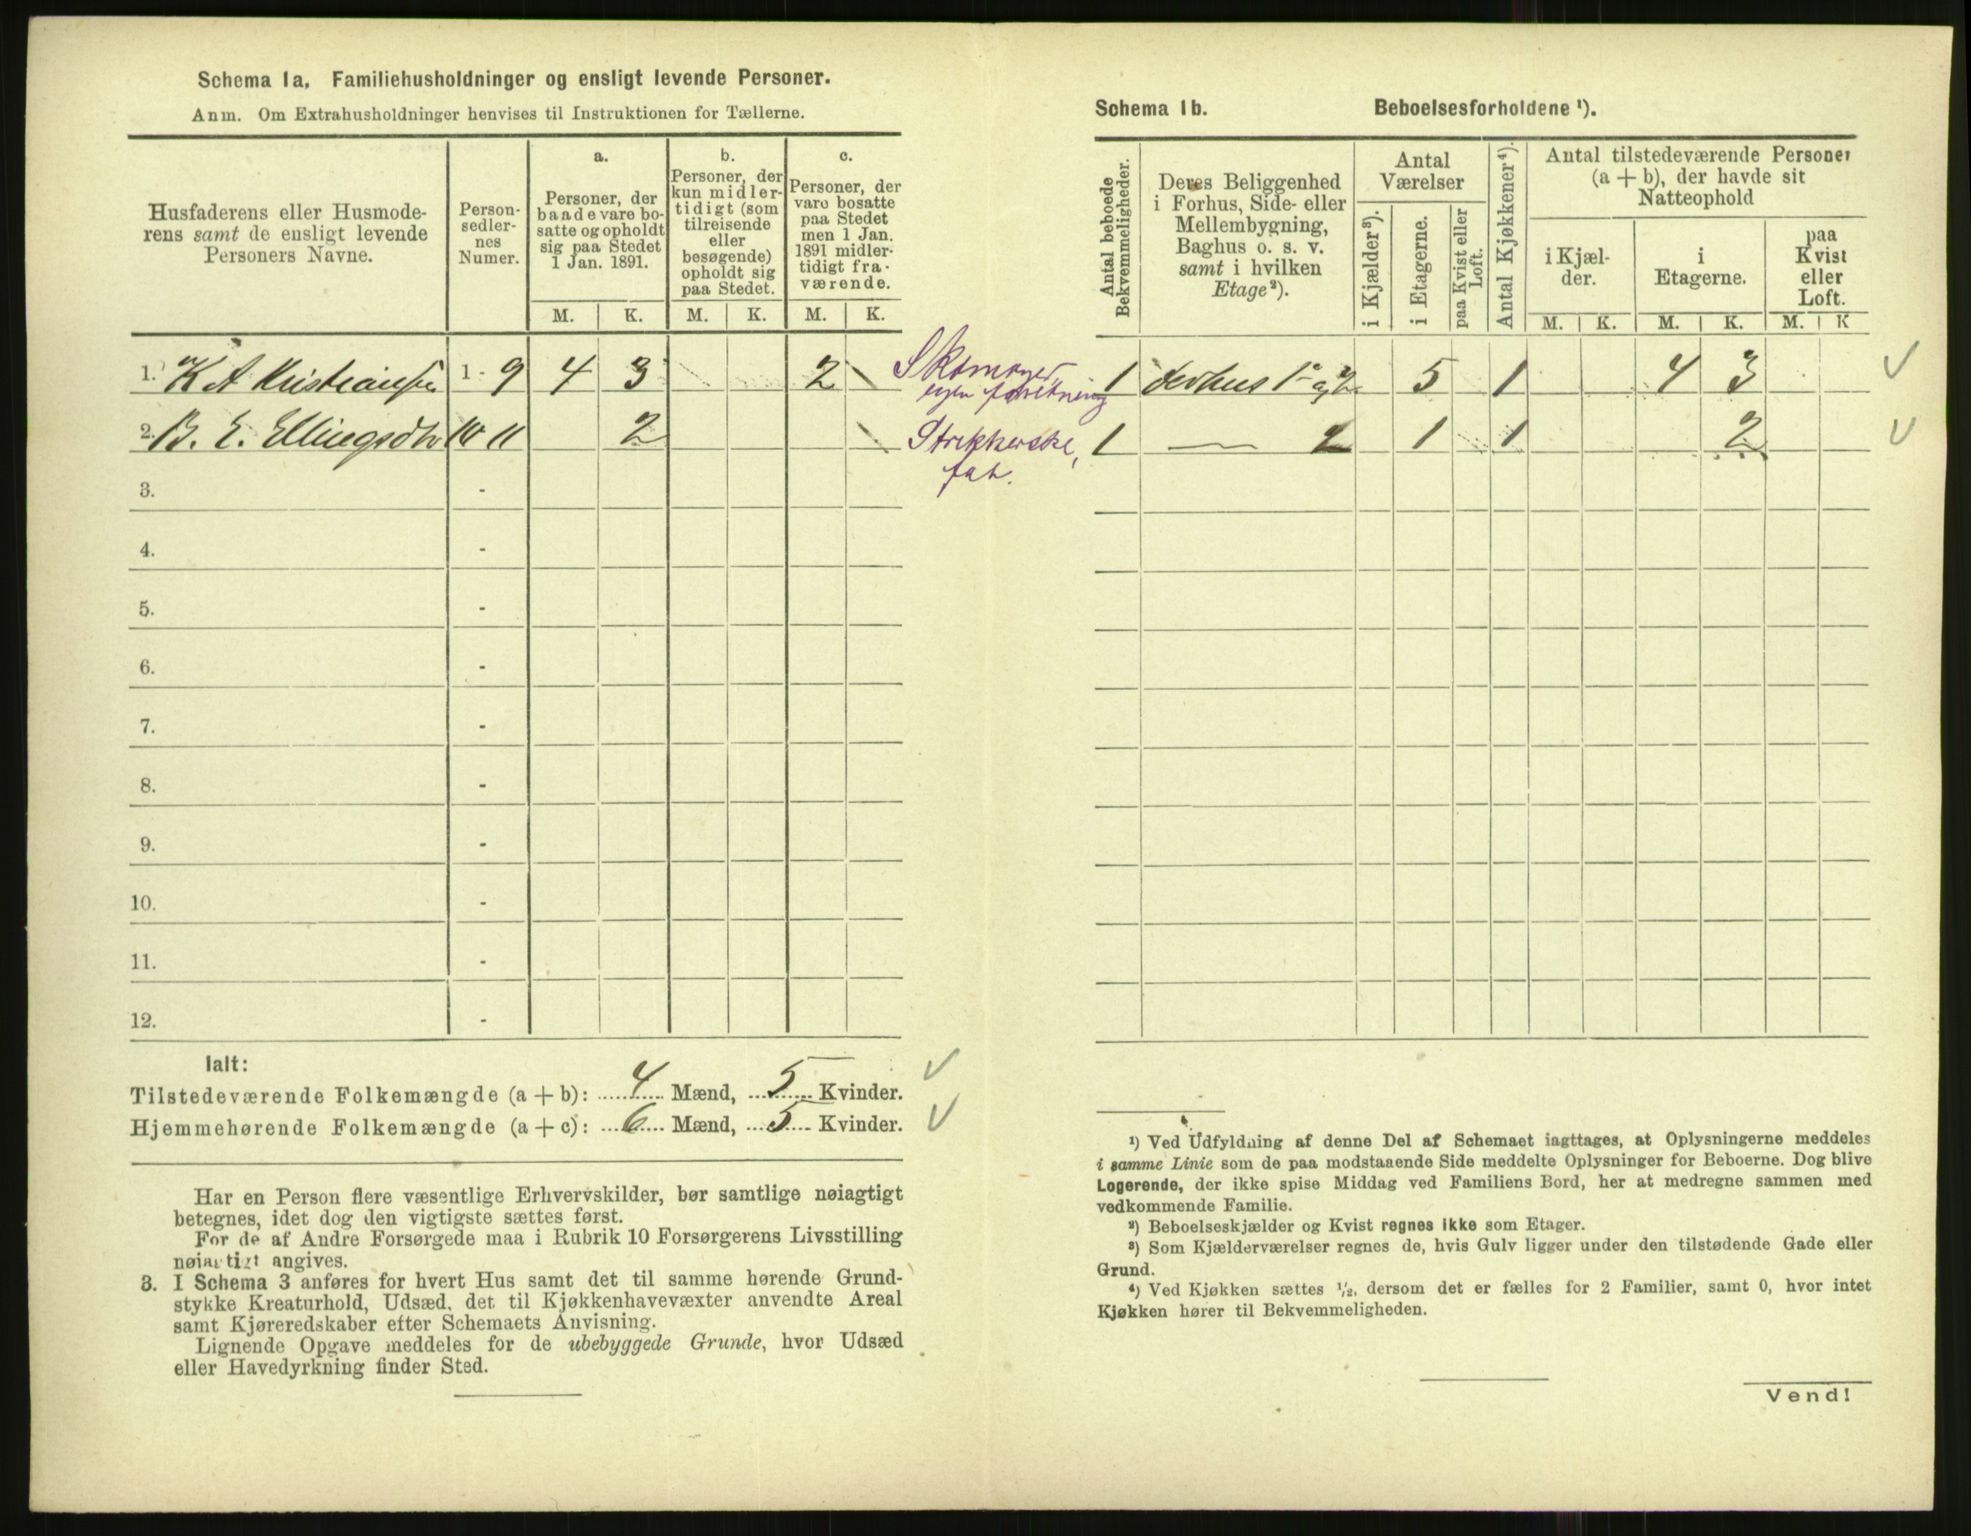 Schema 1a. Familiehusholdninger og ensligt levende Personer.
Anm. Om Extrahusholdninger henvises til Instruktionen for Tællerne.
Husfaderens eller Husmode-
rens samt de ensligt levende
Personers Navne.
Person-
sedler-
nes
Numer.
a.
Personer, der
baade vare bo-
satte og opholdt
sig paa Stedet
1 Jan. 1891.
b.
Personer, der
kun midler-
tidigt (som
tilreisende
eller
besøgende)
opholdt sig
paa Stedet.
c.
Personer, der
vare bosatte
paa Stedet
men 1 Jan.
1891 midler-
tidigt fra-
værende.
M. K. M. K. M. K.
1. K A Kristiansen 1 - 9 4 3 2
Skomager
egen forretning
2. B. E. Ellingsdtr 10 11 2
Strikkerske,
fat.
3. -
4. -
5. -
6. -
7. -
8. -
9. -
10. -
11. -
12. -
Ialt:
Tilstedeværende Folkemængde (a + b): 4 Mænd, 5 Kvinder.
Hjemmehørende Folkemængde (a + c): 6 Mænd, 5 Kvinder.
Har en Person flere væsentlige Erhvervskilder, bør samtlige nøiagtigt
betegnes, idet dog den vigtigste sættes først.
For de af Andre Forsørgede maa i Rubrik 10 Forsørgerens Livsstilling
nøiagtigt angives.
3. I Schema 3 anføres for hvert Hus samt det til samme hørende Grund-
stykke Kreaturhold, Udsæd, det til Kjøkkenhavevæxter anvendte Areal
samt Kjøreredskaber efter Schemaets Anvisning.
Lignende Opgave meddeles for de ubebyggede Grunde, hvor Udsæd
eller Havedyrkning finder Sted.
Schema 1b. Beboelsesforholdene ¹).
Antal beboede
Bekvemmeligheder.
Deres Beliggenhed
i Forhus, Side- eller
Mellembygning,
Baghus o. s. v.
samt i hvilken
Etage²).
Antal
Værelser
i Kjælder³).
i Etagerne.
paa Kvist eller
Loft.
Antal Kjøkkener⁴).
Antal tilstedeværende Personer
(a + b), der havde sit
Natteophold
i Kjæl-
der.
i
Etagerne.
paa
Kvist
eller
Loft.
M. K. M. K. M. K
1 Forhus 1 og 2 5 1 4 3
1 — 2 1 1 2
¹) Ved Udfyldning af denne Del af Schemaet iagttages, at Oplysningerne meddeles
i samme Linie som de paa modstaaende Side meddelte Oplysninger for Beboerne. Dog blive
Logerende, der ikke spise Middag ved Familiens Bord, her at medregne sammen med
vedkommende Familie.
²) Beboelseskjælder og Kvist regnes ikke som Etager.
³) Som Kjælderværelser regnes de, hvis Gulv ligger under den tilstødende Gade eller
Grund.
⁴) Ved Kjøkken sættes ½, dersom det er fælles for 2 Familier, samt 0, hvor intet
Kjøkken hører til Bekvemmeligheden.
Vend!